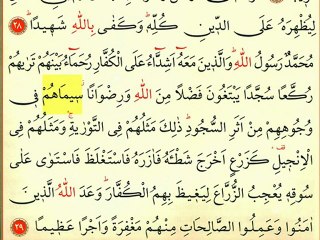 لِيُظْهِرَهُ عَلَى الدِّينِ كُلِّهٖ وَكَفٰى بِاللّٰهِ شَهِيدًاۜ ﴿٢٨﴾
مُحَمَّدٌ رَسُولُ اللّٰهِۜ وَالَّذِينَ مَعَهُٓ اَشِدَّٓاءُ عَلَى الْكُفَّارِ رُحَمَٓاءُ بَيْنَهُمْ تَرٰيهُمْ
رُكَّعًا سُجَّدًا يَبْتَغُونَ فَضْلًا مِنَ اللّٰهِ وَرِضْوَانًاۘ سِيمَاهُمْ فِى
وُجُوهِهِمْ مِنْ اَثَرِ السُّجُودِۜ ذٰلِكَ مَثَلُهُمْ فِى التَّوْرٰيةِۚ وَمَثَلُهُمْ فِى
الْاِنْجٖيلِ۠ كَزَرْعٍ اَخْرَجَ شَطْـَٔهُ فَاٰزَرَهُ فَاسْتَغْلَظَ فَاسْتَوٰى عَلٰى
سُوقِهٖ يُعْجِبُ الزُّرَّاعَ لِيَغٖيظَ بِهِمُ الْكُفَّارَۜ وَعَدَ اللّٰهُ الَّذٖينَ
اٰمَنُوا وَعَمِلُوا الصَّالِحَاتِ مِنْهُمْ مَغْفِرَةً وَاَجْرًا عَظٖيمًا ﴿٢٩﴾